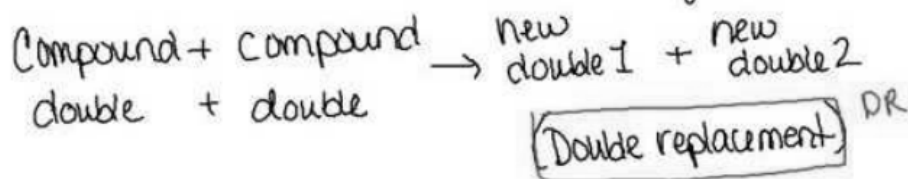 Compound + compound → new double 1 + new double 2
double + double
(Double replacement) DR